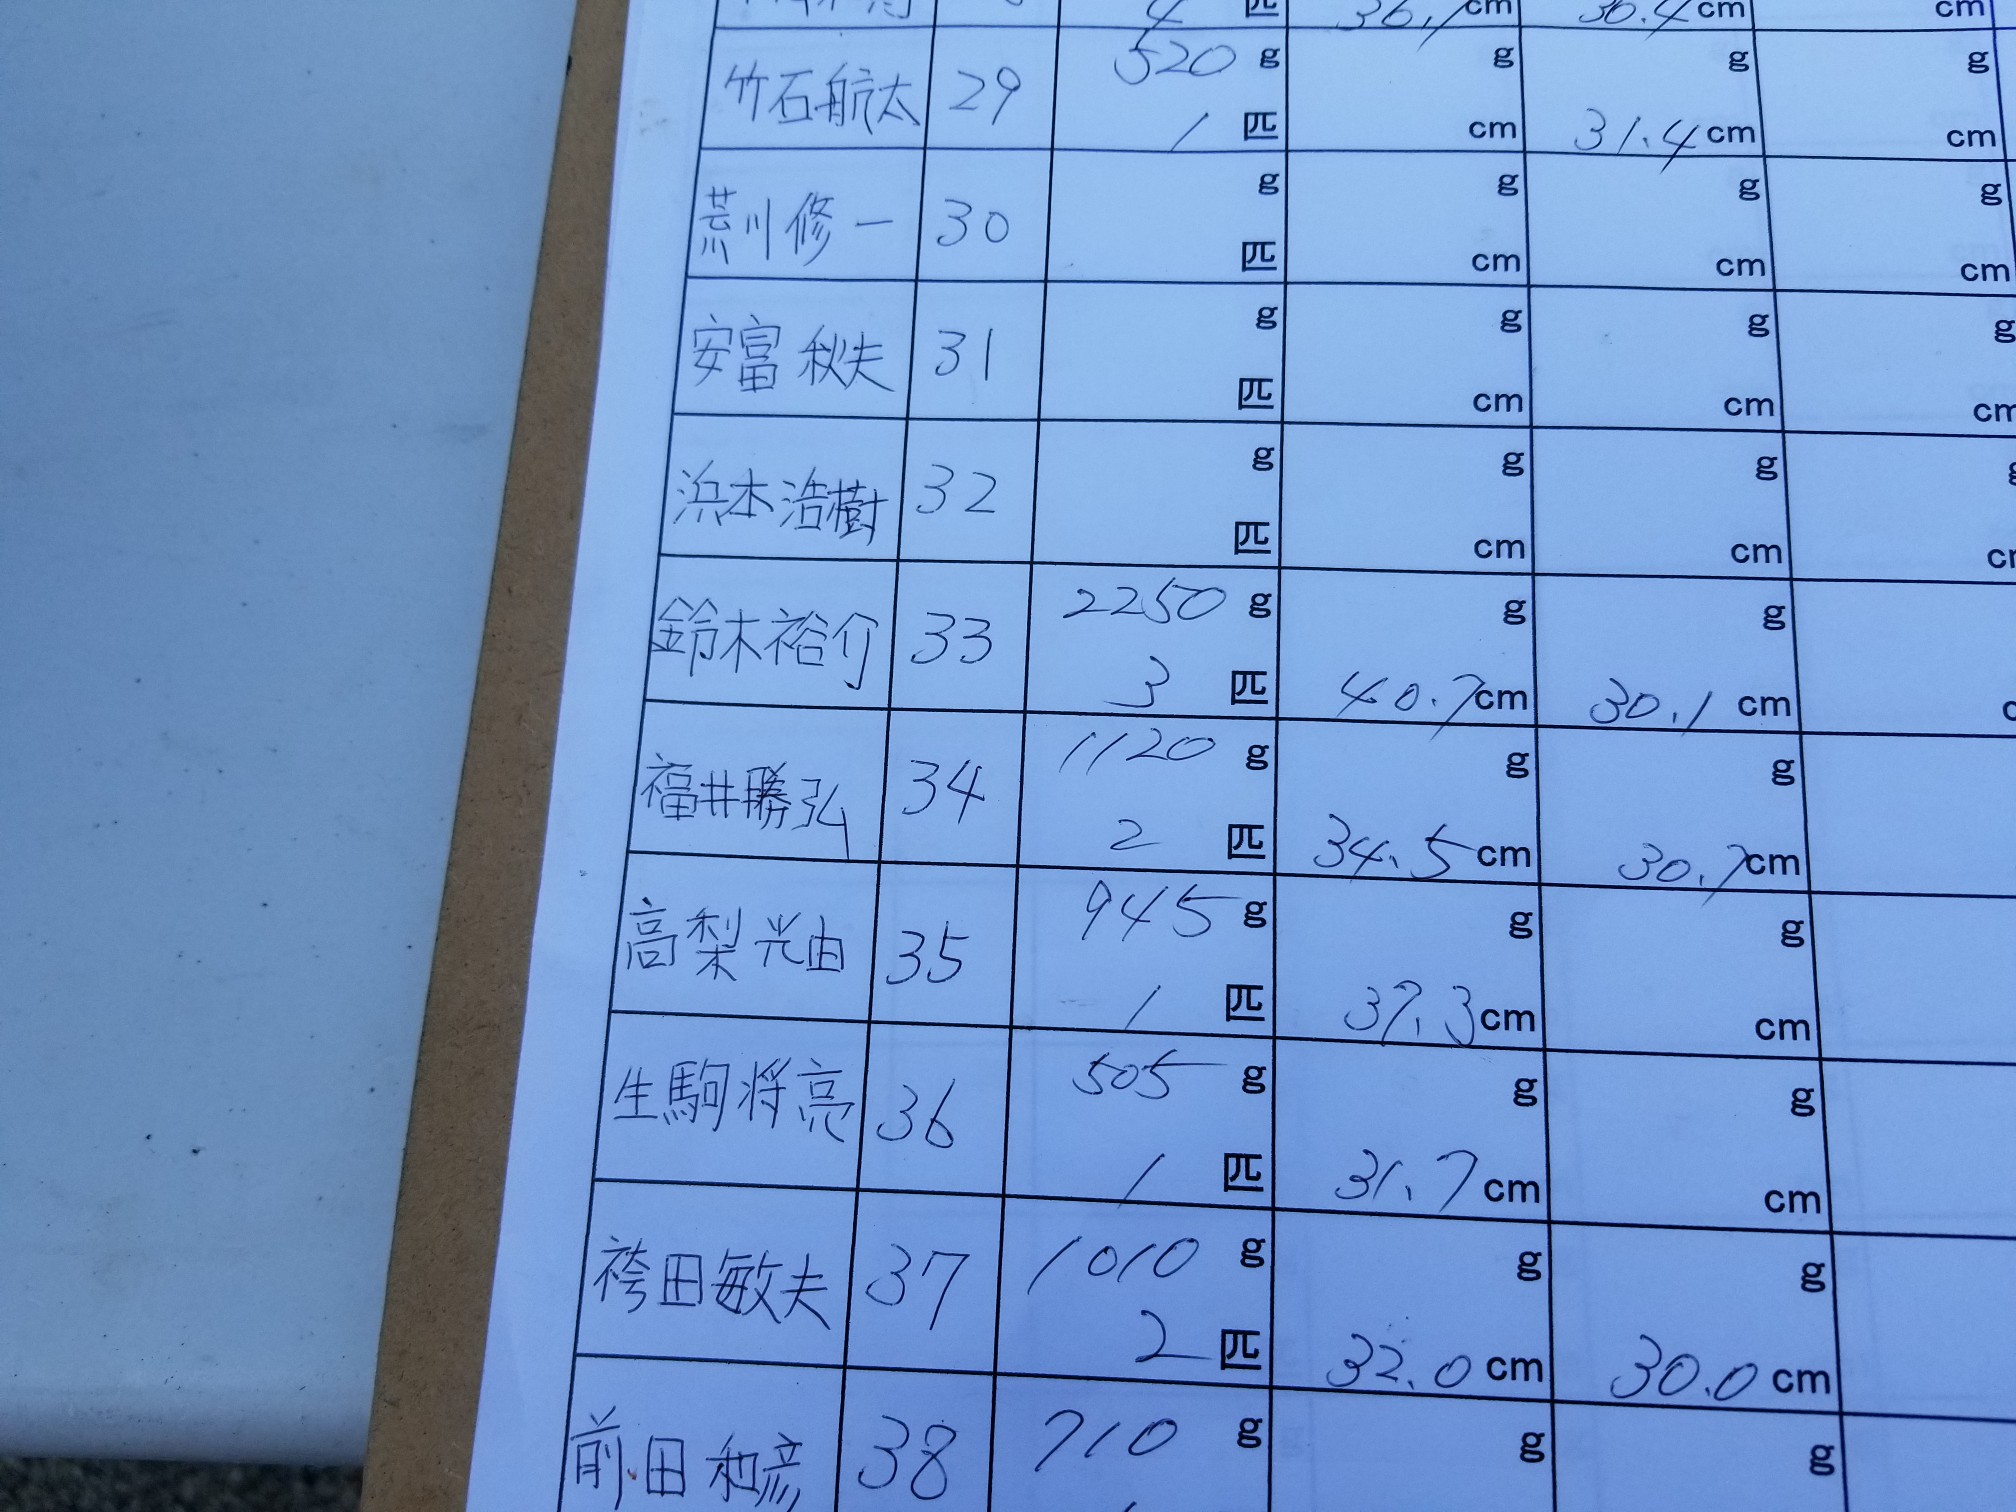 4 匹 36.7cm 30.4cm cm
竹石航太 29 520 g g g g
1 匹 cm 31.4cm cm
荒川修一 30 g g g g
匹 cm cm cm
安富秋夫 31 g g g g
匹 cm cm cm
浜本浩樹 32 g g g
匹 cm cm
鈴木裕介 33 2250 g g g
3 匹 40.7cm 30.1cm
福井勝弘 34 1120 g g g
2 匹 34.5cm 30.7cm
高梨光由 35 945 g g g
1 匹 37.3cm cm
生駒将亮 36 505 g g g
1 匹 31.7cm cm
袴田敏夫 37 1010 g g g
2 匹 32.0cm 30.0cm
前田和彦 38 710 g g g